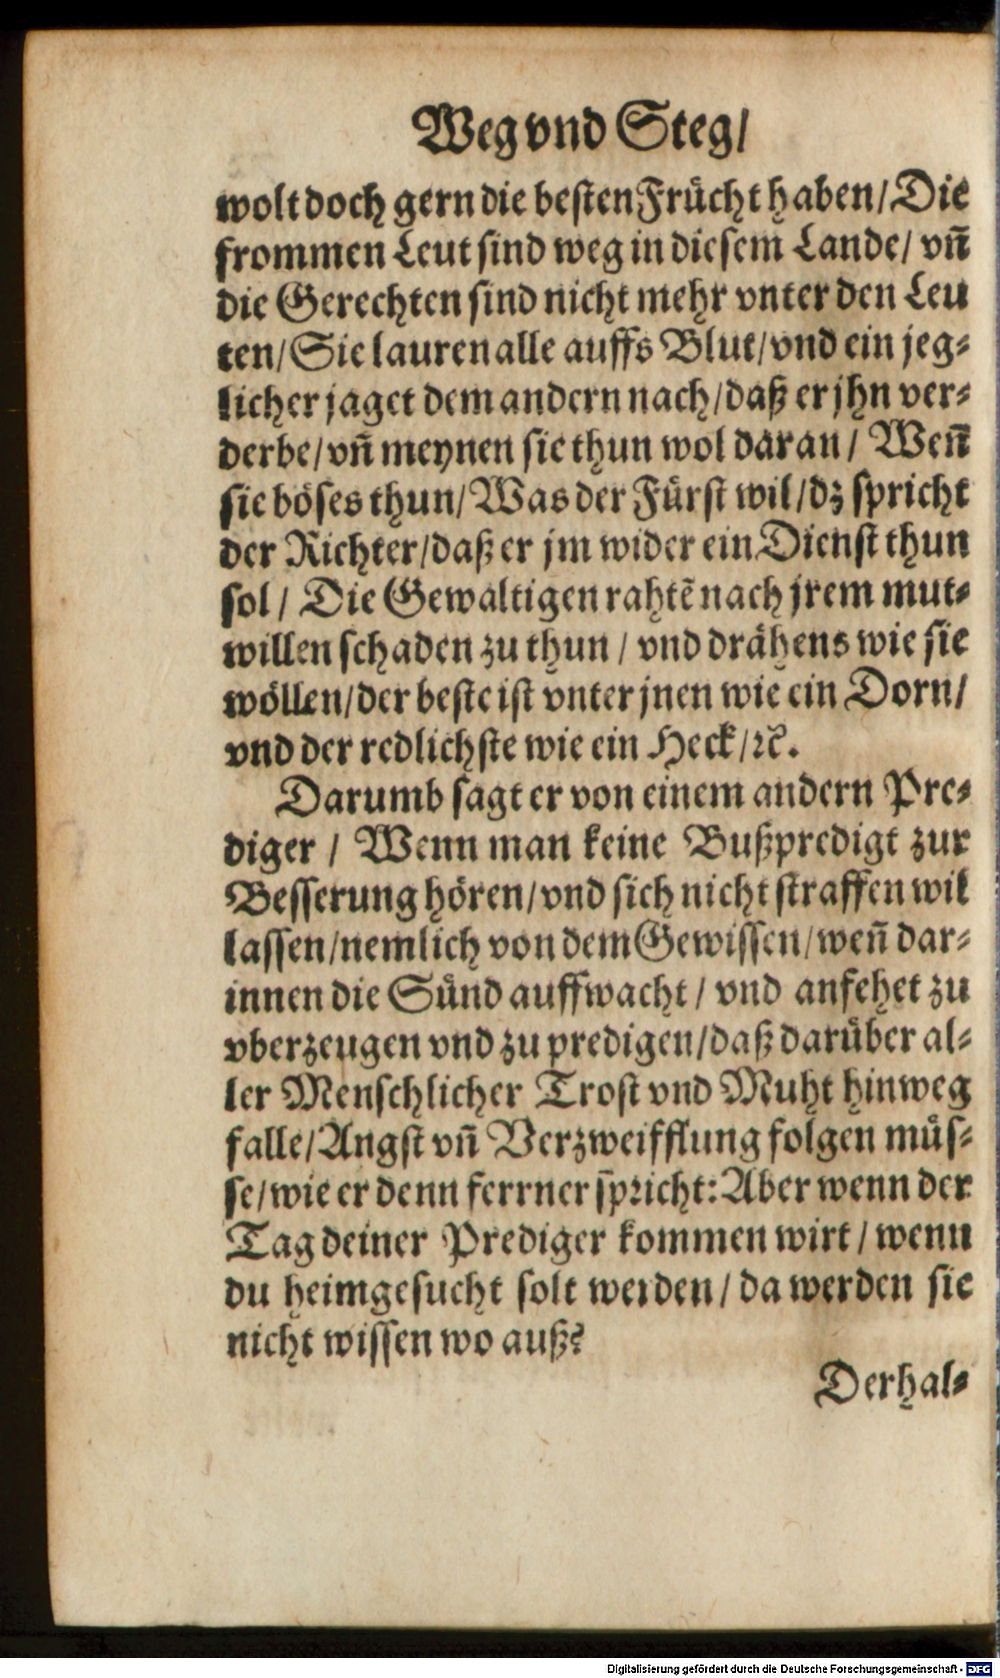 Weg vnd Steg/
wolt doch gern die besten Frücht haben/ Die
frommen Leut sind weg in diesem Lande/ vñ
die Gerechten sind nicht mehr vnter den Leu
ten/ Sie lauren alle auffs Blut/ vnd ein jeg-
licher jaget dem andern nach/ daß er jhn ver-
derbe/ vñ meynen sie thun wol daran/ Wen̄
sie böses thun/ Was der Fürst wil/ dz spricht
der Richter/ daß er jm wider ein Dienst thun
sol/ Die Gewaltigen rahtẽ nach jrem mut-
willen schaden zu thun/ vnd drähens wie sie
wöllen/ der beste ist vnter jnen wie ein Dorn/
vnd der redlichste wie ein Heck/ ꝛc.
Darumb sagt er von einem andern Pre-
diger/ Wenn man keine Bußpredigt zur
Besserung hören/ vnd sich nicht straffen wil
lassen/ nemlich von dem Gewissen/ wen̄ dar-
innen die Sünd auffwacht/ vnd anfehet zu
vberzeugen vnd zu predigen/ daß darüber al-
ler Menschlicher Trost vnd Muht hinweg
falle/ Angst vñ Verzweifflung folgen müs-
se/ wie er denn ferrner spricht: Aber wenn der
Tag deiner Prediger kommen wirt/ wenn
du heimgesucht solt werden/ da werden sie
nicht wissen wo auß?
Derhal-
Digitalisierung gefördert durch die Deutsche Forschungsgemeinschaft - DFG